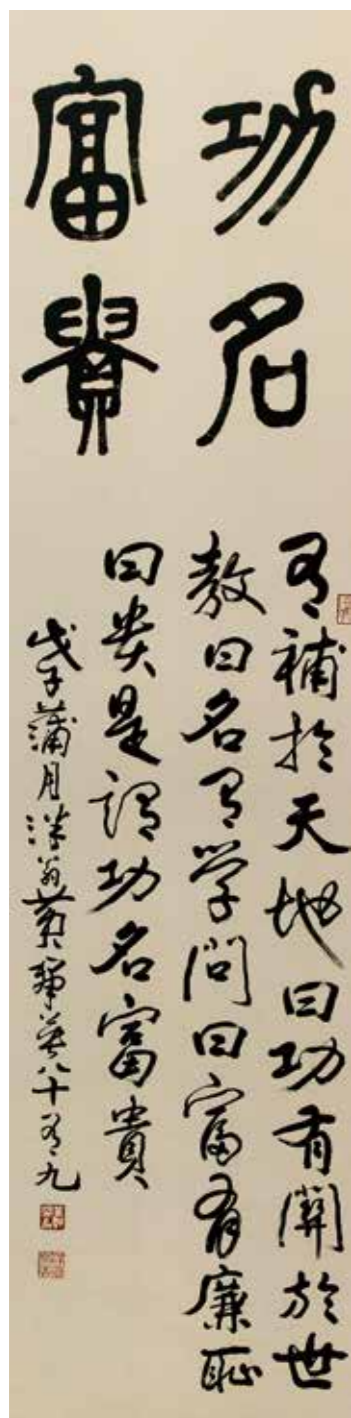 功名
富貴
有補於天地曰功有關於世
教曰名有学問曰富有廉恥
曰貴是謂功名富貴
戊子蒲月翁黄八十有九